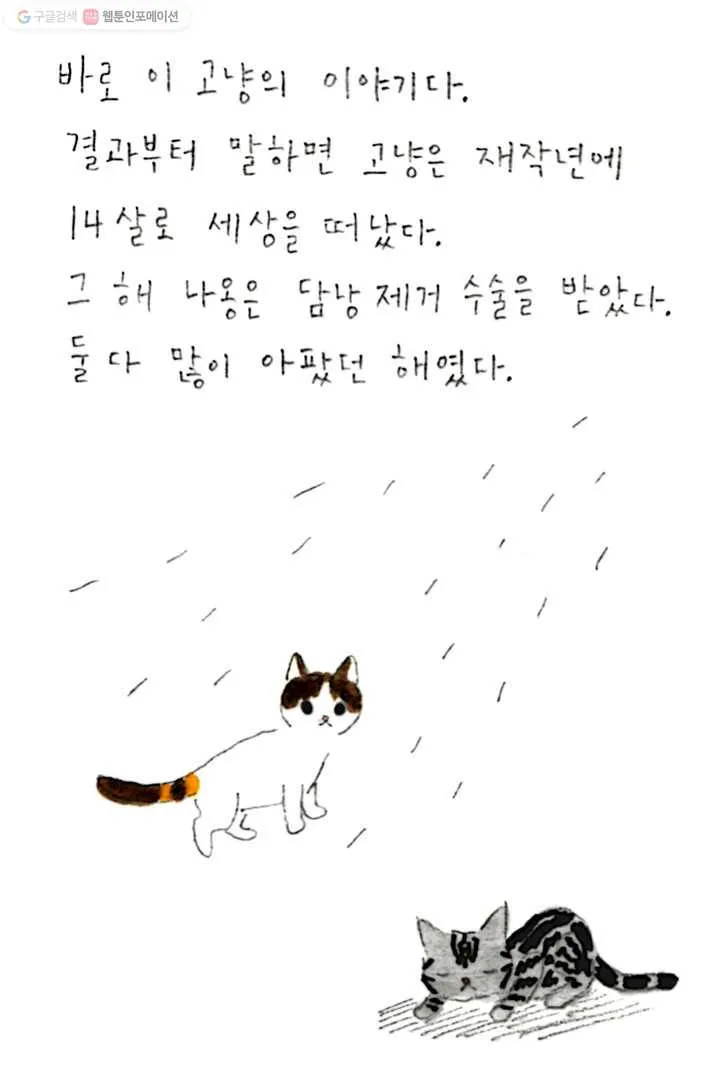 구글검색 웹툰인포메이션
바로 이 고냥의 이야기다.
결과부터 말하면 고냥은 재작년에
14살로 세상을 떠났다.
그 해 나옹은 담낭 제거 수술을 받았다.
둘 다 많이 아팠던 해였다.